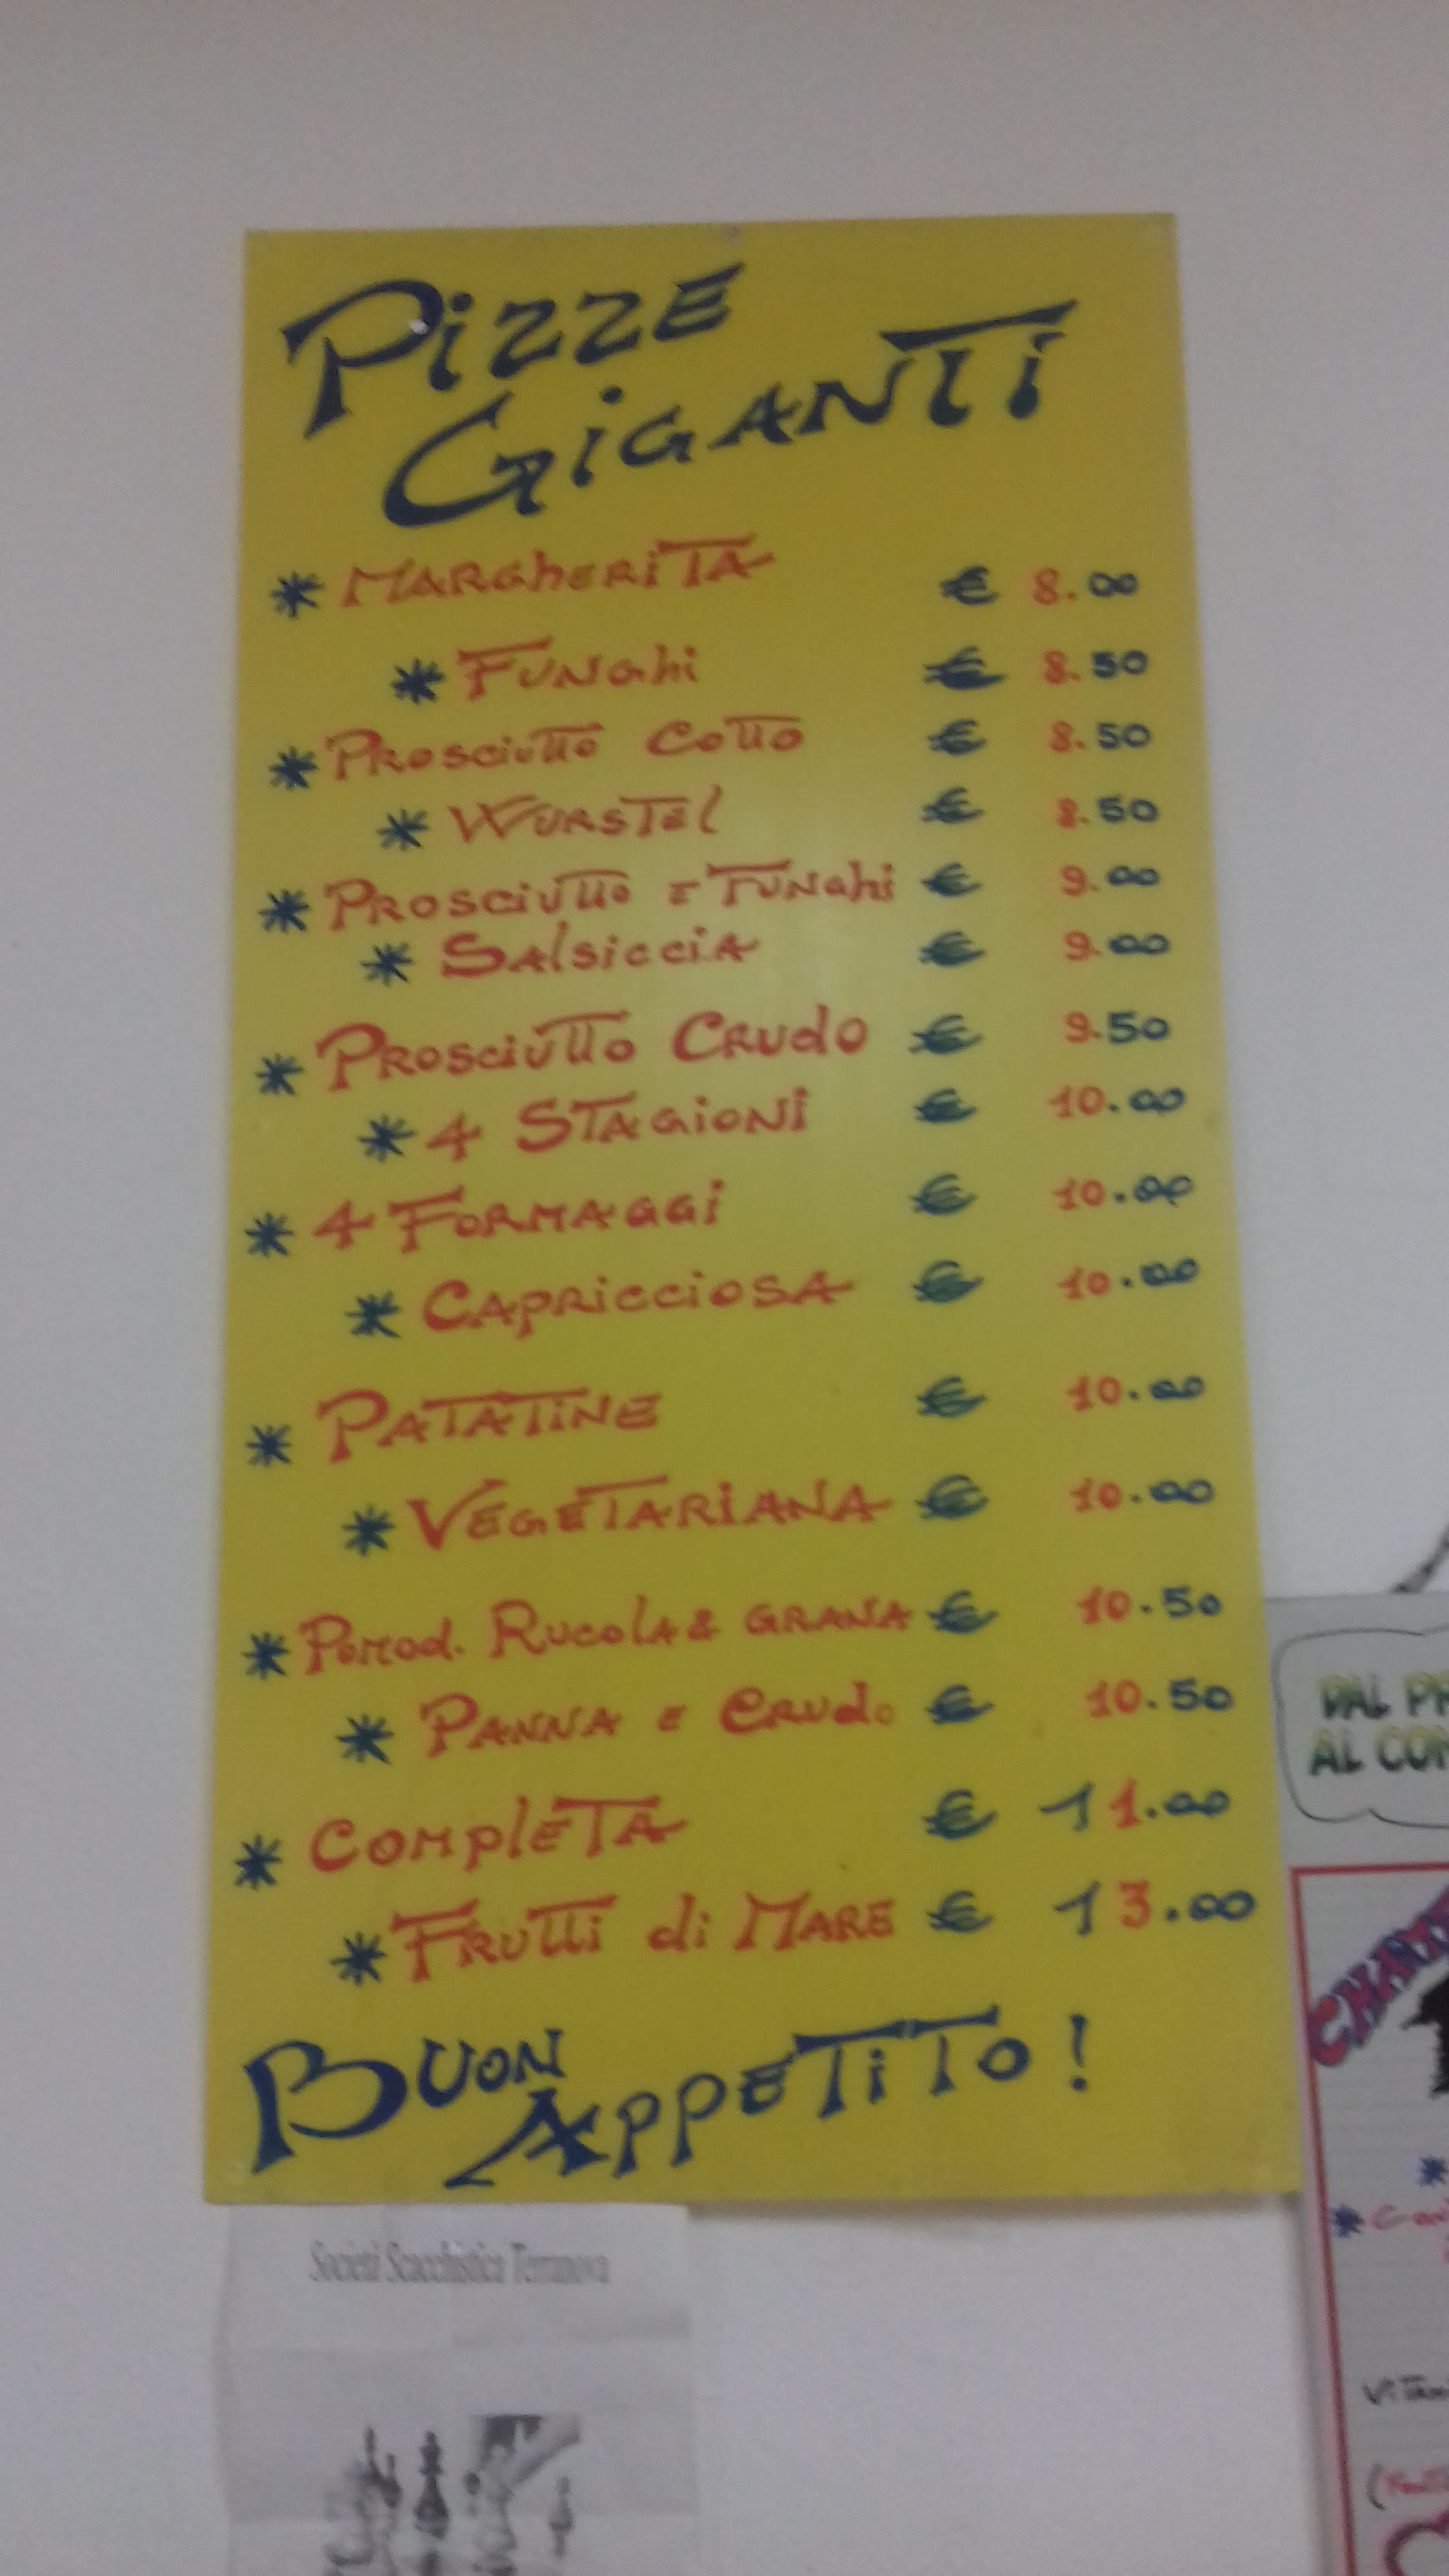 Pizze
Giganti
* Margherita € 8.00
* Funghi € 8.50
* Prosciutto Cotto € 8.50
* Wurstel € 8.50
* Prosciutto e Funghi € 9.00
* Salsiccia € 9.00
* Prosciutto Crudo € 9.50
* 4 Stagioni € 10.00
* 4 Formaggi € 10.00
* Capricciosa € 10.00
* Patatine € 10.00
* Vegetariana € 10.00
* Pomod. Rucola & Grana € 10.50
* Panna e Crudo € 10.50
* Completa € 11.00
* Frutti di Mare € 13.00
Buon
Appetito!
Società Scacchistica Terranova
DAL PR
AL CON